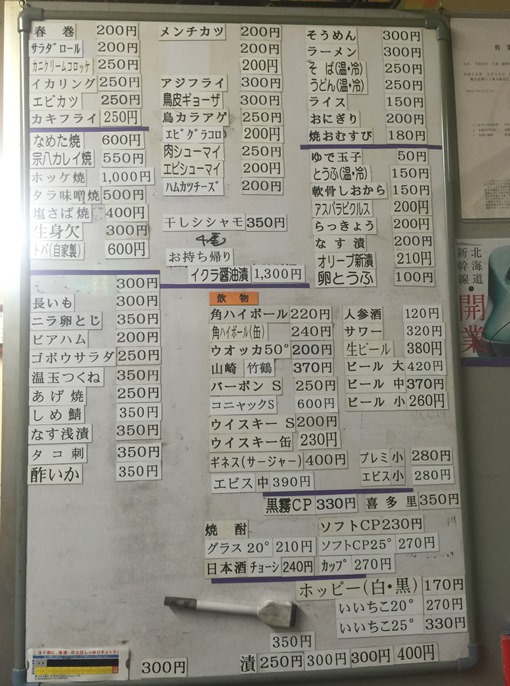 春巻 200円
サラダロール 200円
カニクリームコロッケ 250円
イカリング 250円
エビカツ 250円
カキフライ 250円
なめた焼 600円
宗八カレイ焼 550円
ホッケ焼 1,000円
タラ味噌焼 500円
塩さば焼 400円
生身欠 300円
トバ(自家製) 600円
300円
長いも 300円
ニラ卵とじ 350円
ビアハム 200円
ゴボウサラダ 250円
温玉つくね 350円
あげ焼 250円
しめ鯖 350円
なす浅漬 350円
タコ刺 350円
酢いか 350円
メンチカツ 200円
200円
200円
アジフライ 300円
鳥皮ギョーザ 300円
鳥カラアゲ 250円
エビグラコロ 200円
肉シューマイ 250円
エビシューマイ 200円
ハムカツチーズ 200円
干しシシャモ 350円
お持ち帰り
イクラ醤油漬 1,300円
そうめん 300円
ラーメン 300円
そば(温・冷) 250円
うどん(温・冷) 250円
ライス 150円
おにぎり 200円
焼おむすび 180円
ゆで玉子 50円
とうふ(温・冷) 150円
軟骨しおから 150円
アスパラピクルス 200円
らっきょう 200円
なす漬 200円
オリーブ新漬 210円
卵とうふ 100円
飲物
角ハイボール 220円
角ハイボール(缶) 240円
ウオッカ50° 200円
山崎 竹鶴 370円
バーボンS 250円
コニャックS 600円
ウイスキーS 200円
ウイスキー缶 230円
ギネス(サージャー) 400円
エビス中 390円
人参酒 120円
サワー 320円
生ビール 380円
ビール 大 420円
ビール 中 370円
ビール 小 260円
プレミ小 280円
エビス小 280円
黒霧CP 330円 喜多里 350円
焼酎 ソフトCP 230円
グラス20° 210円 ソフトCP25° 270円
日本酒 チョーシ 240円 カップ 270円
ホッピー(白・黒) 170円
いいちこ20° 270円
いいちこ25° 330円
350円
300円 漬 250円 300円 300円 400円
北海道
新幹線
開業